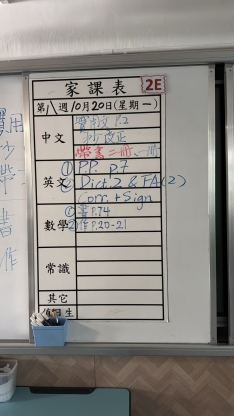 家課表 2E
第八週10月20日(星期一)
中文
實用文 P.2
改正
帶書二冊、一冊
英文
① P.P. p.7
② Dict. 2 & FA(2)
Corr. + Sign
數學
① 書 P.74
② 作 P.20-21
常識
其它